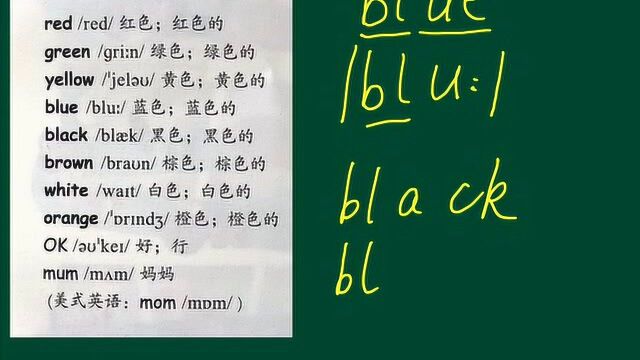 red /red/ 红色；红色的
green /ɡriːn/ 绿色；绿色的
yellow /ˈjeləʊ/ 黄色；黄色的
blue /bluː/ 蓝色；蓝色的
black /blæk/ 黑色；黑色的
brown /braʊn/ 棕色；棕色的
white /waɪt/ 白色；白色的
orange /ˈɒrɪndʒ/ 橙色；橙色的
OK /əʊˈkeɪ/ 好；行
mum /mʌm/ 妈妈
(美式英语：mom /mɒm/ )
blue
/bluː/
black
bl